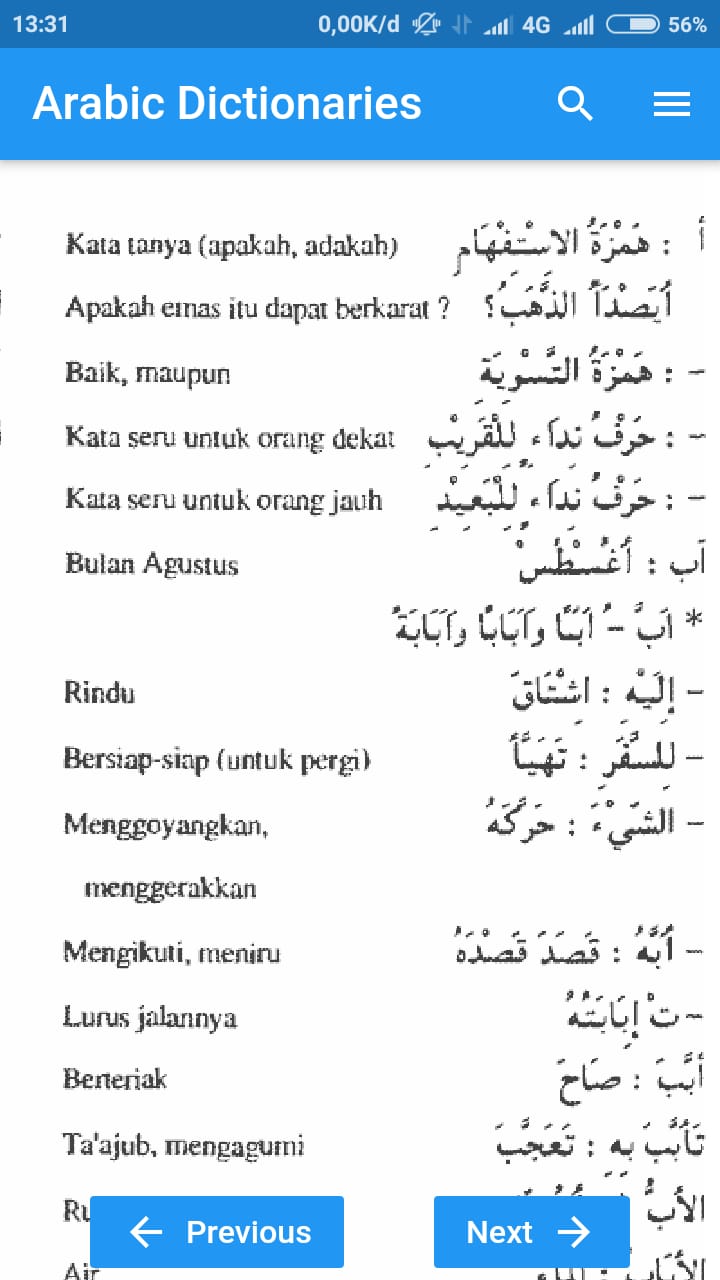 13:31 0,00K/d 4G 56%
Arabic Dictionaries
Kata tanya (apakah, adakah) أ : هَمْزَةُ الاسْتِفْهَامِ
Apakah emas itu dapat berkarat ? أَيَصْدَأُ الذَّهَبُ؟
Baik, maupun – : هَمْزَةُ التَّسْوِيَةِ
Kata seru untuk orang dekat – : حَرْفُ نِدَاءٍ لِلْقَرِيْبِ
Kata seru untuk orang jauh – : حَرْفُ نِدَاءٍ لِلْبَعِيْدِ
Bulan Agustus آب : أُغُسْطُسْ
* أَبَّ – ُ أَبًّا وَأَبَابًا وَأَبَابَةً
Rindu – إِلَيْهِ : اشْتَاقَ
Bersiap-siap (untuk pergi) – لِلسَّفَرِ : تَهَيَّأَ
Menggoyangkan, – الشَّيْءَ : حَرَّكَهُ
menggerakkan
Mengikuti, meniru – أَبَّهُ : قَصَدَ قَصْدَهُ
Lurus jalannya – تْ إِبَابَتُهُ
Berteriak أَبَّبَ : صَاحَ
Ta'ajub, mengagumi تَأَبَّبَ بِهِ : تَعَجَّبَ
الأَبُّ
Air
Previous Next